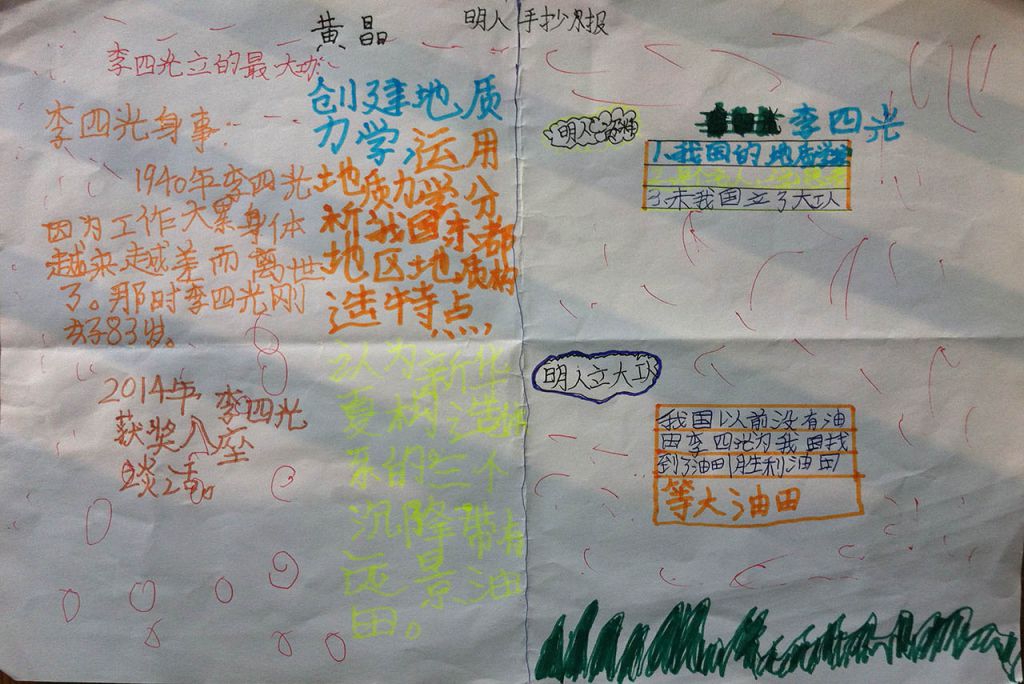 明人手抄报
黄晶
李四光立的最大功
李四光身事:
1940年李四光
因为工作太累身体
越来越差而离世
了。那时李四光刚
好83岁。
2014年李四光
获奖入座
谈话。
创建地质
力学,运用
地质力学分
析我国东都
地区地质构
造特点,
认为新华
夏构造
系的三个
沉降带
还景油
田。
明人资料
李四光
1.我国的地质学
3.未我国立了大功
明人立大功
我国以前没有油
田李四光为我国找
到了油田胜利油田
等大油田